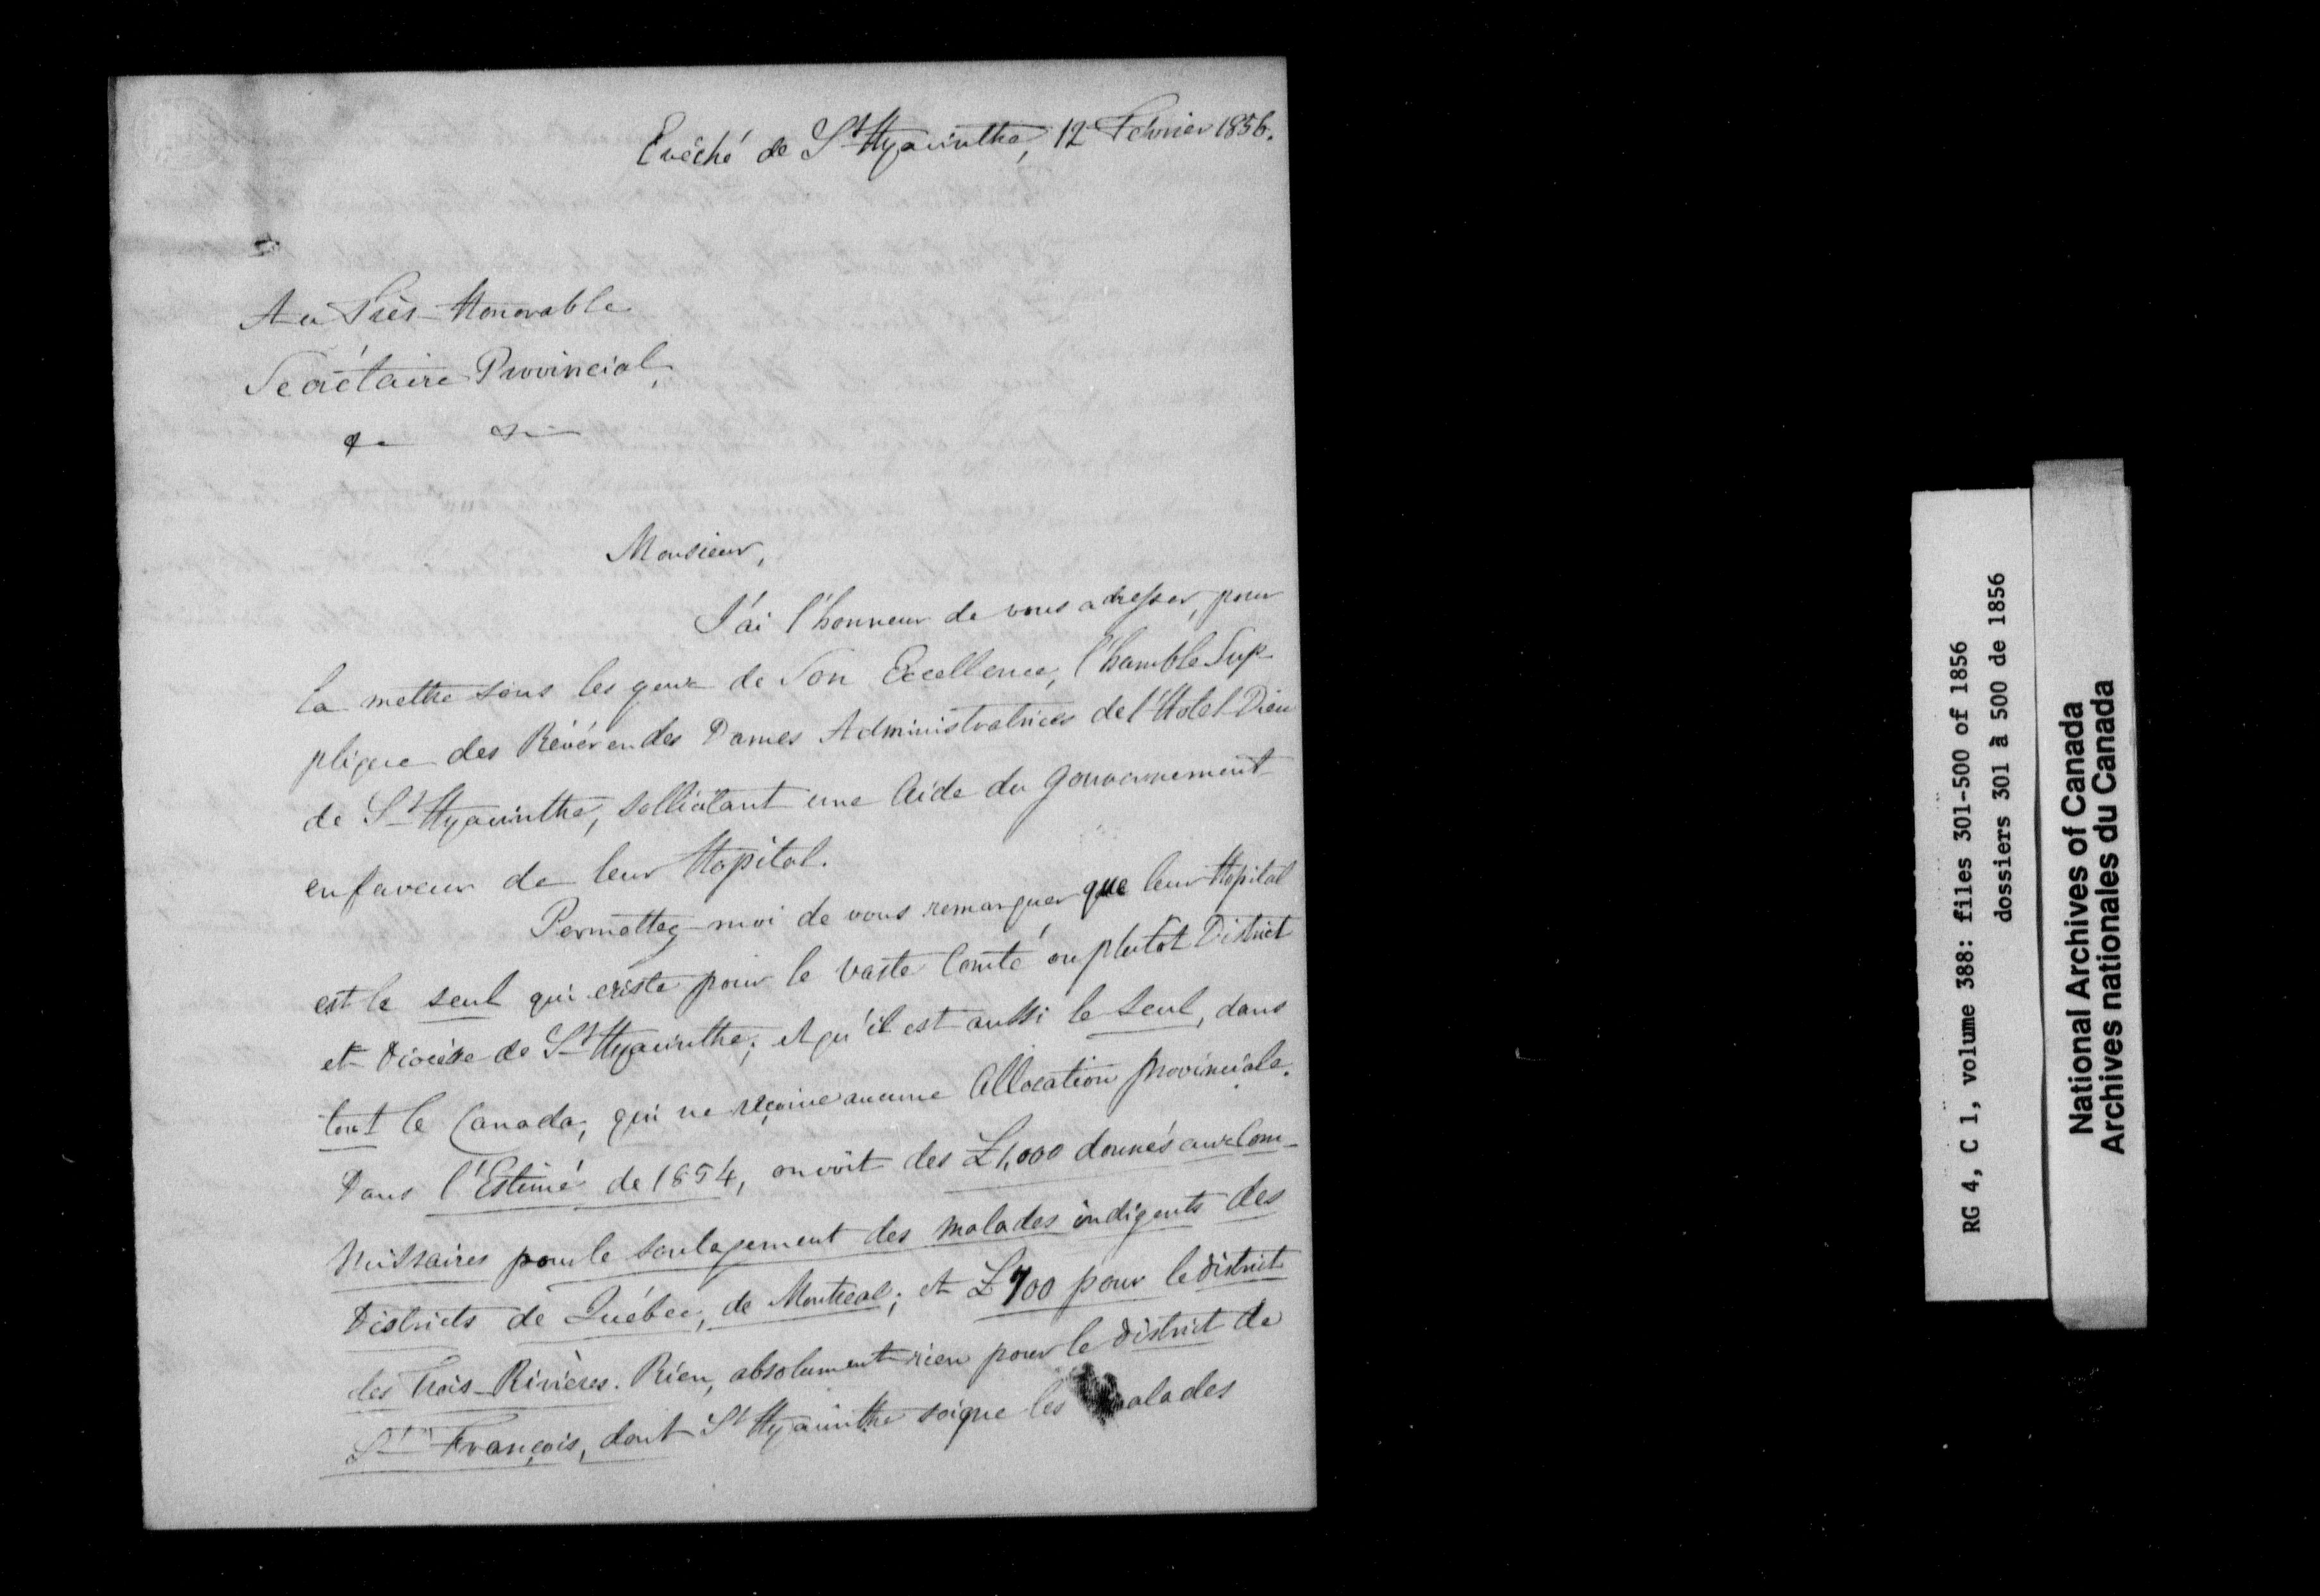 Evêché de St Hyacinthe, 12 Février 1856.
Au Très-Honorable
Secrétaire Provincial,
Monsieur,
J'ai l'honneur de vous adresser, pour
la mettre sous les yeux de Son Excellence, l'humble Sup-
plique des Révérendes Dames Administratrices de l'Hotel-Dieu
de St Hyacinthe, sollicitant une Aide du gouvernement
en faveur de leur Hopital.
Permettez-moi de vous remarquer que leur Hopital
est le seul qui existe pour le vaste Comté ou plutot District
et Diocèse de St Hyacinthe; et qu'il est aussi le seul, dans
tout le Canada, qui ne reçoive aucune Allocation provinciale.
Dans l'Estimé de 1854, on voit des £1,000 donnés aux Com-
missaires pour le soulagement des malades indigents des
Districts de Québec, de Montreal; et £700 pour le district
des Trois-Rivières. Rien, absolument rien pour le district de
St François, dont St Hyacinthe soigne les malades
RG 4, C 1, volume 388: files 301-500 of 1856
dossiers 301 à 500 de 1856
National Archives of Canada
Archives nationales du Canada